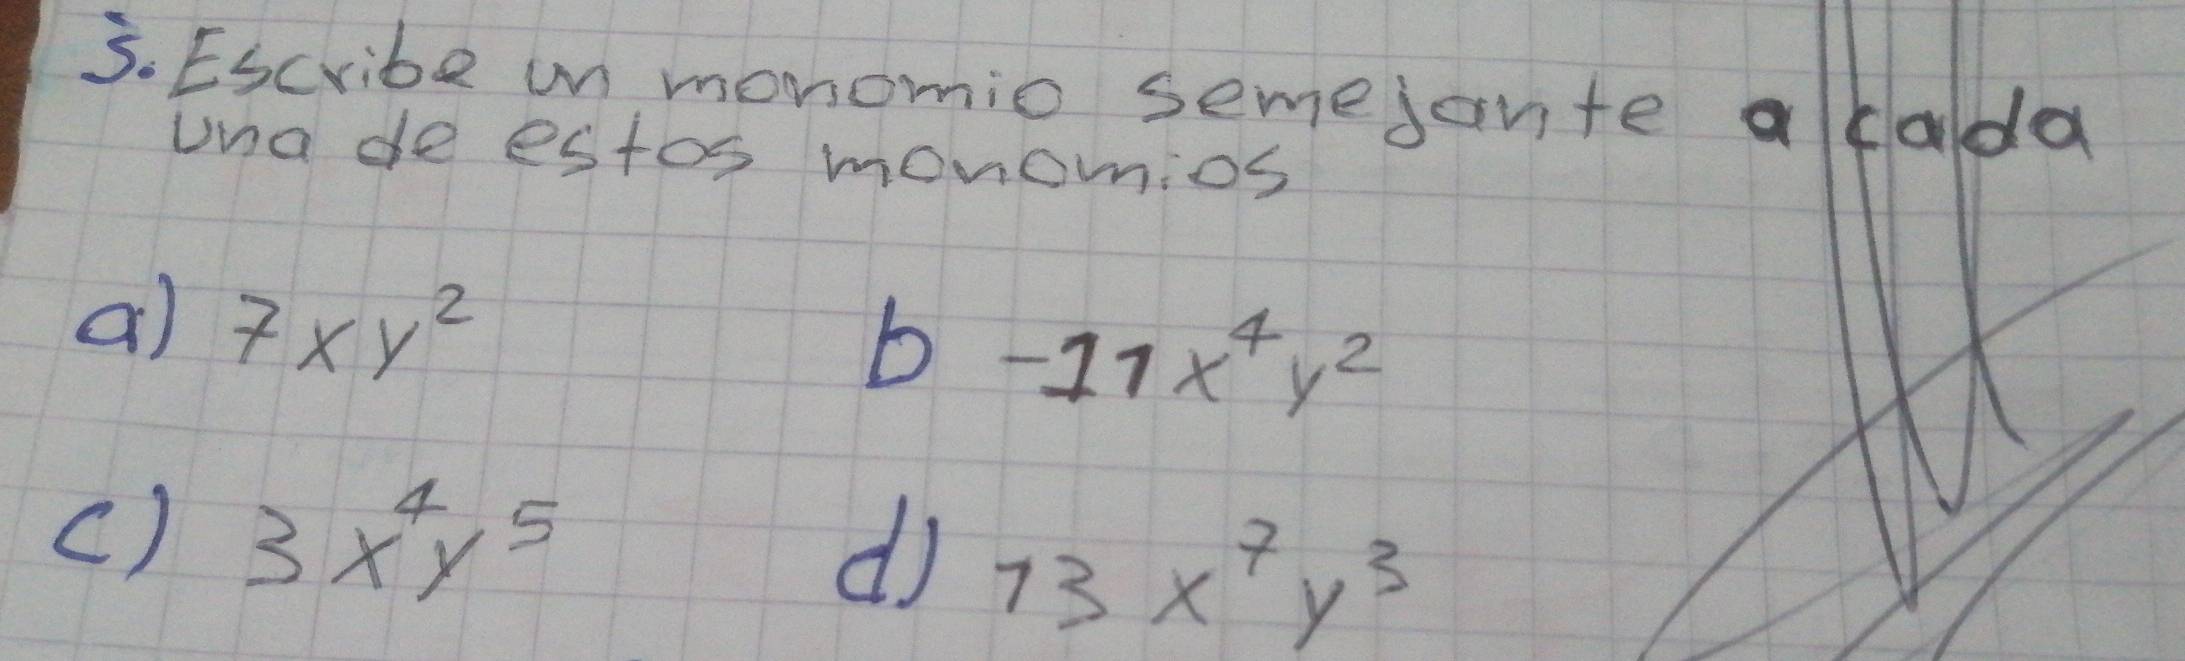 3. Escribe un monomio semejante a cada
una de estos monomios
a) 7xy²
b -11x⁴y²
c) 3x⁴y⁵
d) 13x⁷y³